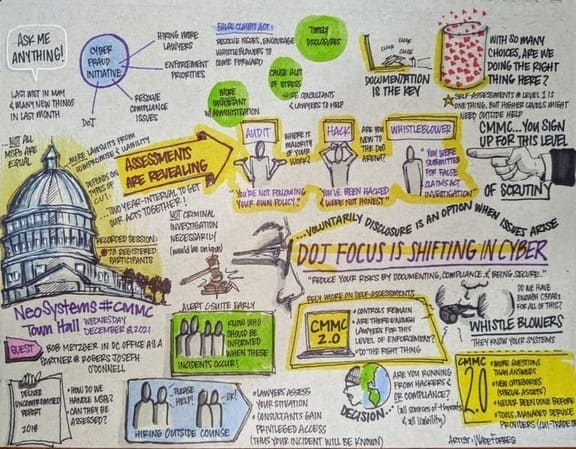 ASK ME
ANYTHING!
LAST MET IN MAY
& MANY NEW THINGS
IN LAST MONTH
CYBER
FRAUD
INITIATIVE
HIRING MORE
LAWYERS
ENFORCEMENT
PRIORITIES
RESOLVE
COMPLIANCE
ISSUES
DOJ
FALSE CLAIMS ACT:
RESOLVE ISSUES, ENCOURAGE
WHISTLEBLOWERS TO
COME FORWARD
TIMELY
DISCLOSURES
CAUSE ALOT
OF STRESS
MORE
IMPORTANT
W/ADMINISTRATION
HIRE CONSULTANTS
& LAWYERS TO HELP
CLICK
CLICK
DOCUMENTATION
IS THE KEY
WITH SO MANY
CHOICES, ARE WE
DOING THE RIGHT
THING HERE?
SELF-ASSESSMENTS @ LEVEL 1 IS
ONE THING, BUT HIGHER LEVELS MIGHT
NEED OUTSIDE HELP
CMMC...YOU SIGN
UP FOR THIS LEVEL
OF SCRUTINY
NOT ALL
MSPs ARE
EQUAL
MORE LAWSUITS FROM
COMPROMISE & LIABILITY
DEPENDS ON
TYPES OF
CUI
ASSESSMENTS
ARE REVEALING
AUDIT
WHERE IS
MAJORITY
OF YOUR
WORK?
HACK
ARE YOU
NEW TO
THE DOD
ARENA?
WHISTLEBLOWER
"YOU'RE NOT FOLLOWING
YOUR OWN POLICY."
"YOU'VE BEEN HACKED
& WERE NOT HONEST"
"YOU WERE
SUBMITTED
FOR FALSE
CLAIMS ACT
INVESTIGATION"
...TWO YEAR-INTERVAL TO GET
OUR ACTS TOGETHER!
RECORDED SESSION:
73 REGISTERED
PARTICIPANTS
NOT CRIMINAL
INVESTIGATION
NECESSARILY
(would be unique)
...VOLUNTARILY DISCLOSURE IS AN OPTION WHEN ISSUES ARISE
DOJ FOCUS IS SHIFTING IN CYBER
"REDUCE YOUR RISKS BY DOCUMENTING, COMPLIANCE, & BEING SECURE..."
NEOSYSTEMS #CMMC
TOWN HALL WEDNESDAY
DECEMBER 8, 2021
GUEST
BOB METZGER IN DC OFFICE AS A
PARTNER @ ROGERS JOSEPH
O'DONNELL
ALERT C-SUITE EARLY
KNOW WHO
SHOULD BE
INFORMED
WHEN THESE
INCIDENTS OCCUR!
RELY MORE ON SELF-ASSESSMENTS
CMMC
2.0
• CONTROLS REMAIN
• ARE THERE ENOUGH
LAWYERS FOR THIS
LEVEL OF ENFORCEMENT?
• DO THE RIGHT
THING
DO WE HAVE
ENOUGH C3PAOs
FOR ALL OF THIS?
WHISTLE BLOWERS
THEY KNOW YOUR SYSTEMS
DELIVER
UNCOMPROMISED
REPORT
2018
• HOW DO WE
HANDLE MSPs?
• CAN THEY BE
ASSESSED?
PLEASE
HELP!
OK!
HIRING OUTSIDE COUNSE
• LAWYERS ASSESS
YOUR SITUATION
• CONSULTANTS GAIN
PRIVILEGED ACCESS
(THUS YOUR INCIDENT WILL BE KNOWN)
DECISION...
ARE YOU RUNNING
FROM HACKERS
OR COMPLIANCE?
(all sources of threats
& all liability)
CMMC
2.0
• MORE QUESTIONS
THAN ANSWERS
• NEW CATEGORIES
(SPECIAL ASSETS)
• NEVER BEEN DONE BEFORE
• TOOLS, MANAGED SERVICE
PROVIDERS
ARTIST: WADE FORBES